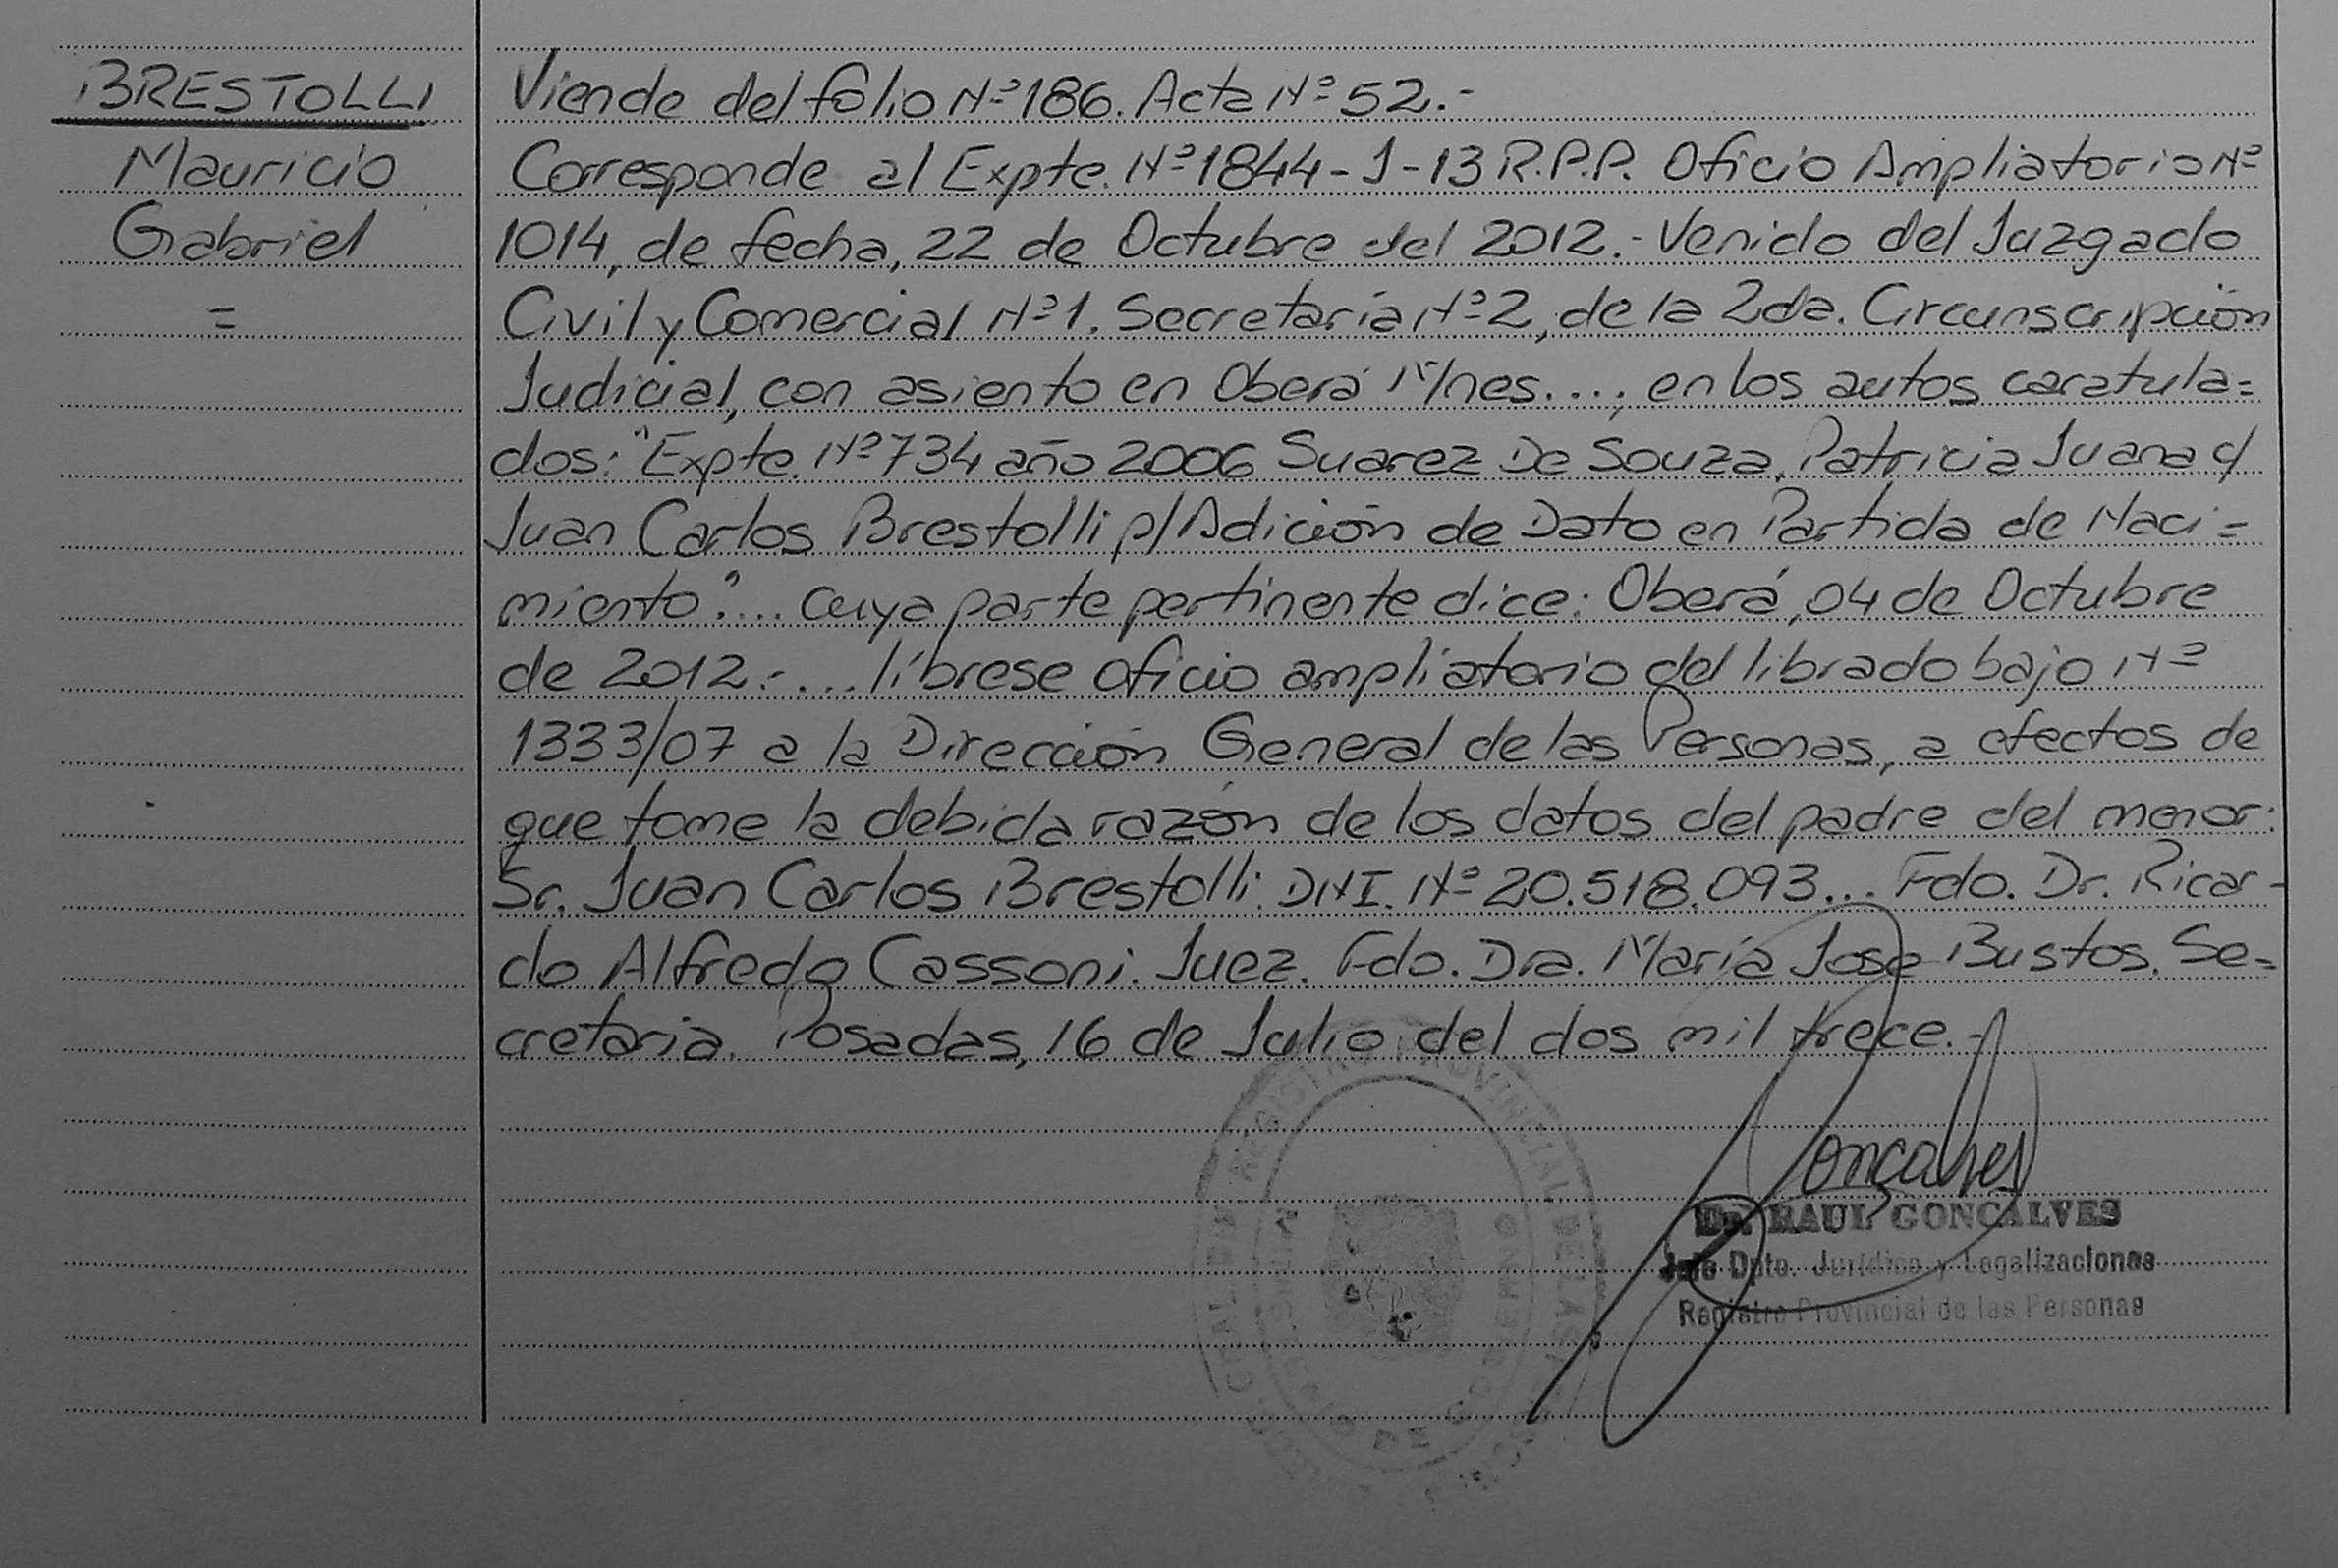 BRESTOLLI
Mauricio
Gabriel
=
Viende del folio Nº 186. Acta Nº 52.-
Corresponde al Expte. Nº 1844-J-13 R.P.P. Oficio Ampliatorio Nº
1014, de fecha, 22 de Octubre del 2012.- Venido del Juzgado
Civil y Comercial Nº 1. Secretaría Nº 2, de la 2da. Circunscripción
Judicial, con asiento en Oberá M/nes...., en los autos caratula=
dos: "Expte. Nº 734 año 2006 Suarez De Souza, Patricia Juana c/
Juan Carlos Brestolli p/Adición de Dato en Partida de Naci=
miento"... cuya parte pertinente dice: Oberá, 04 de Octubre
de 2012.-... líbrese oficio ampliatorio del librado bajo Nº
1333/07 a la Dirección General de las Personas, a efectos de
que tome la debida razón de los datos del padre del menor:
Sr. Juan Carlos Brestolli. DNI. Nº 20.518.093... Fdo. Dr. Ricar-
do Alfredo Cassoni. Juez. Fdo. Dra. María Jose Bustos. Se=
cretaria. Posadas, 16 de Julio del dos mil trece.-
Gonçalves
Dr. RAUL GONCALVES
Jefe Dpto. Jurídico y Legalizaciones
Registro Provincial de las Personas
REGISTRO PROVINCIAL DE LAS
DE GOBIERNO